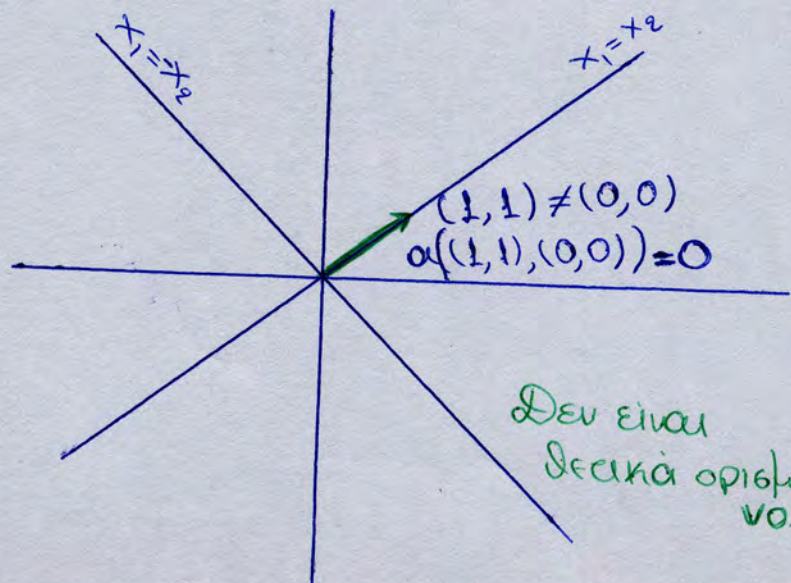 x₁=-x₂
x₁=x₂
(1,1)≠(0,0)
α((1,1),(0,0))=0
Δεν είναι
θετικά ορισμ
νο.